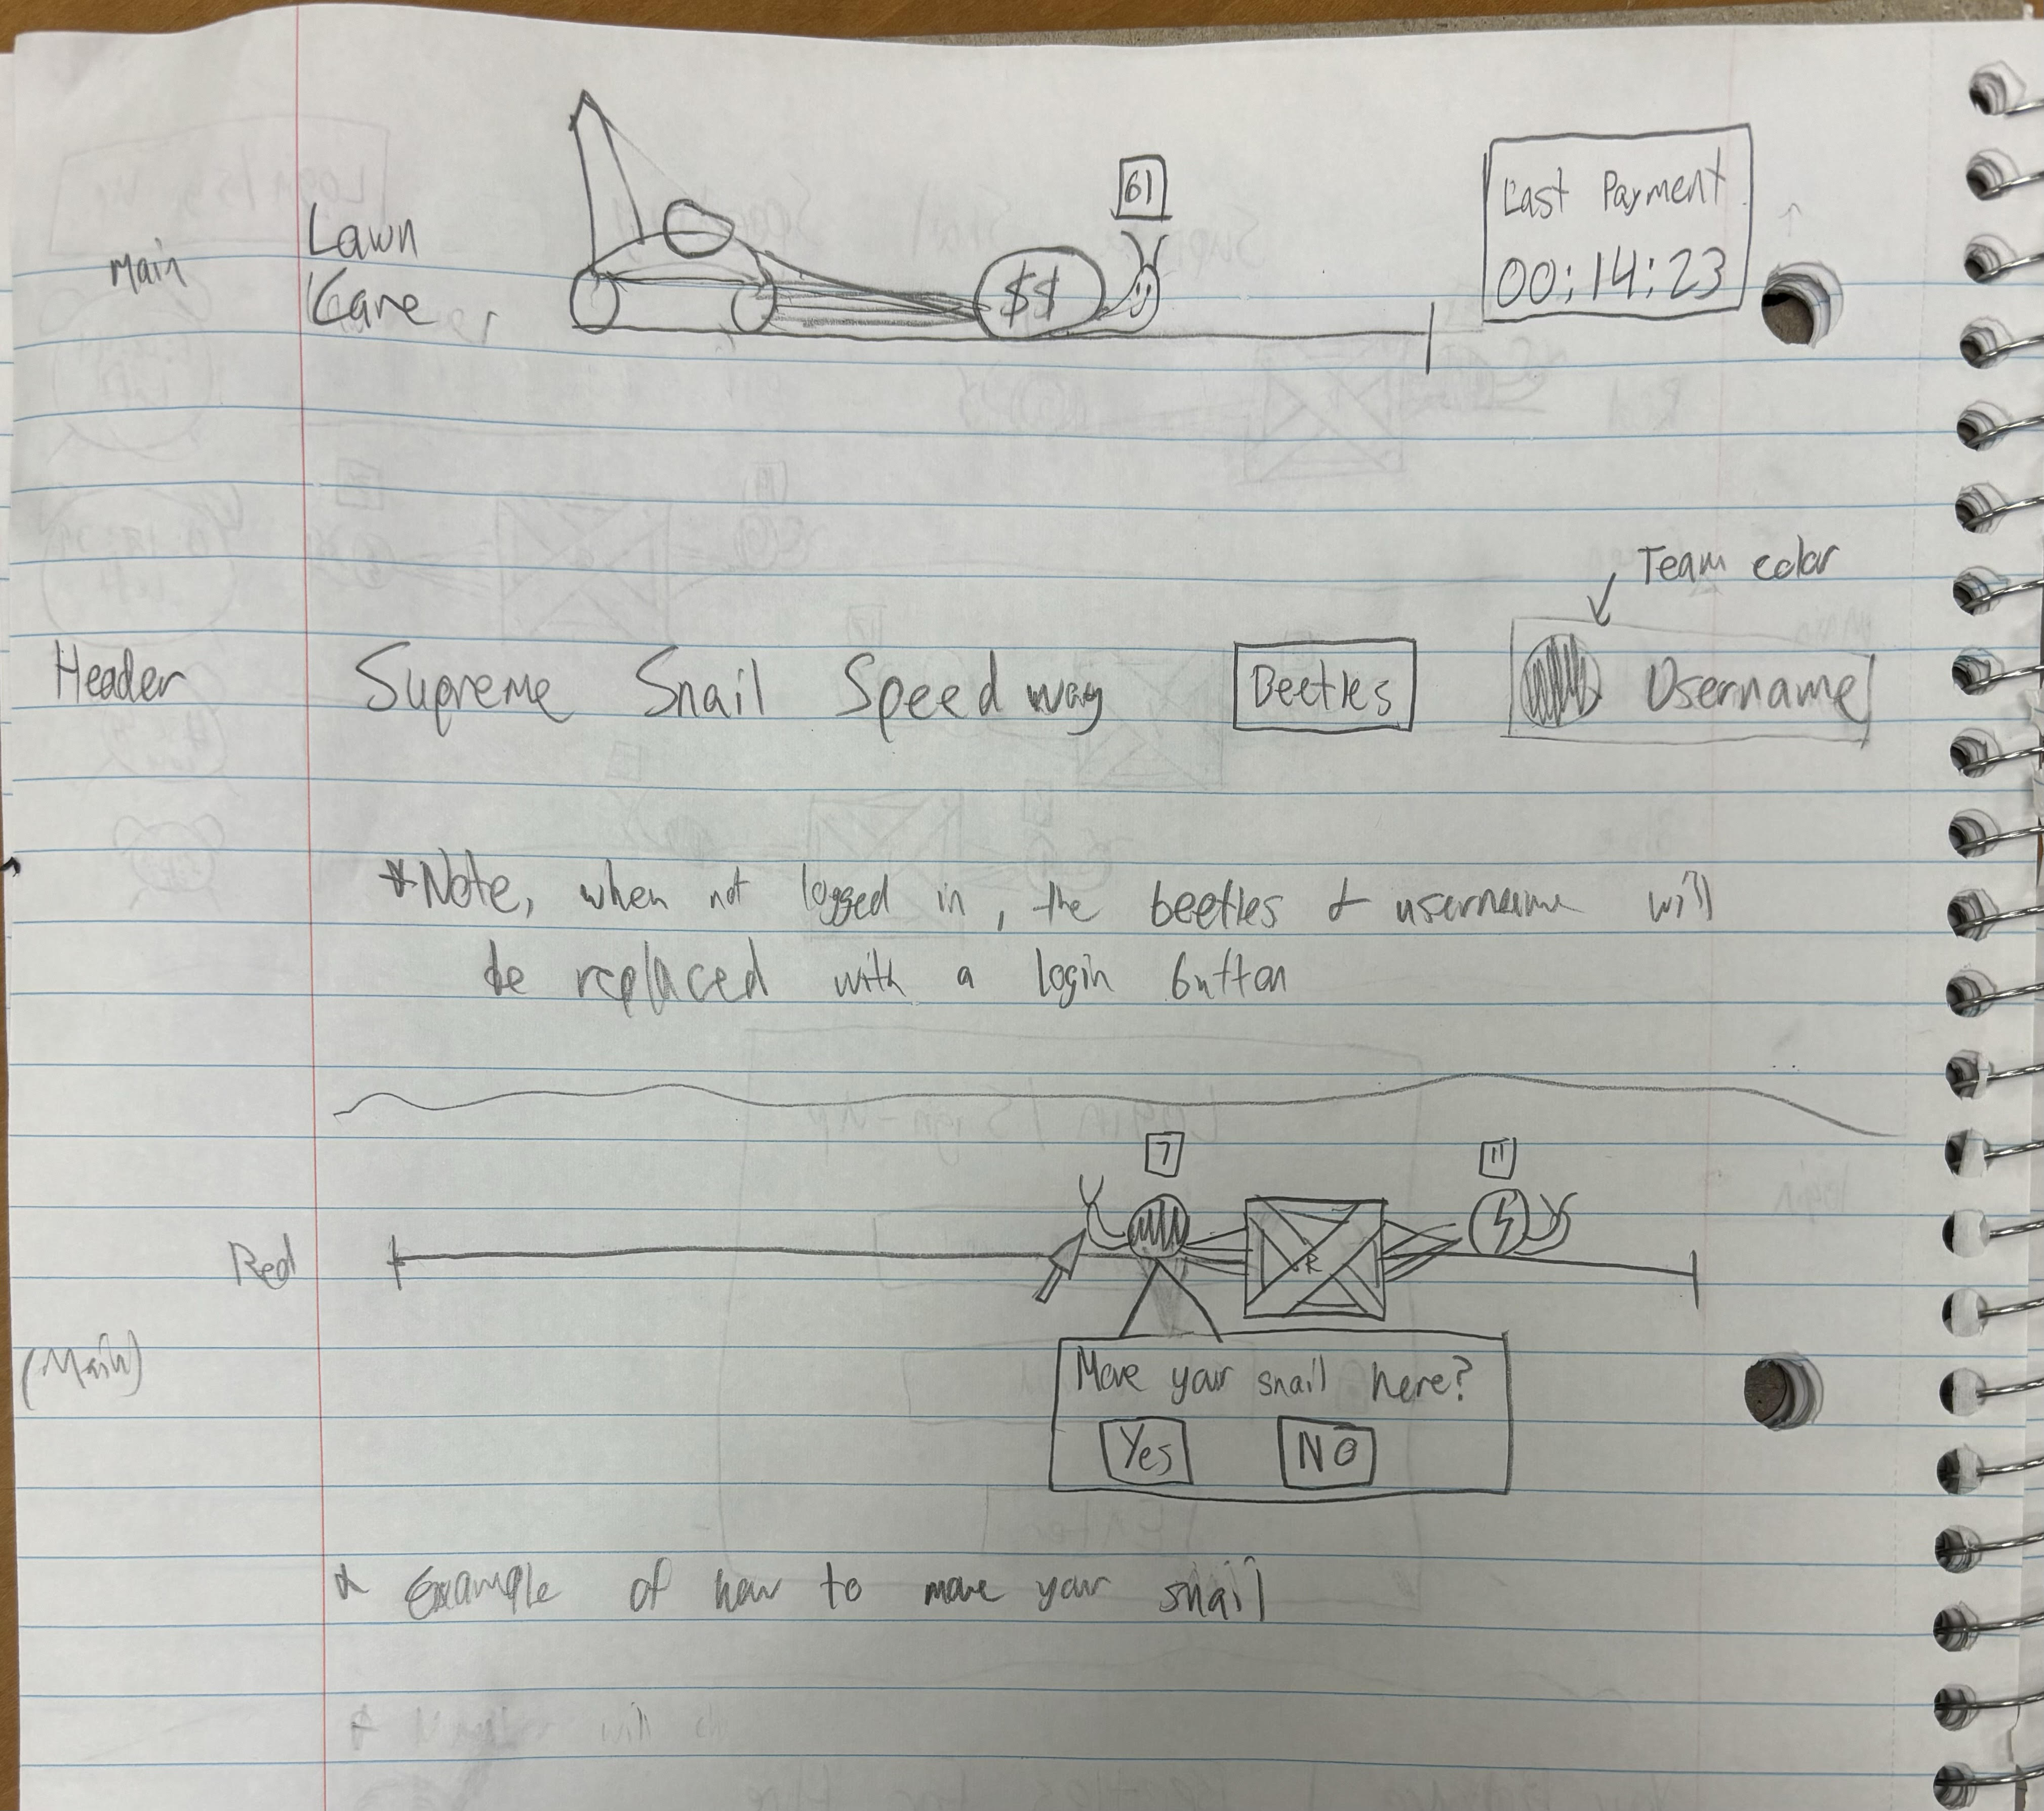 Main
Lawn
Care
$$
61
Last Payment
00:14:23
Team color
Header
Supreme Snail Speedway
Beetles
Username
*Note, when not logged in, the beetles & username will
be replaced with a login button
7
11
Red
R
(Main)
Move your snail here?
Yes
NO
* Example of how to move your snail